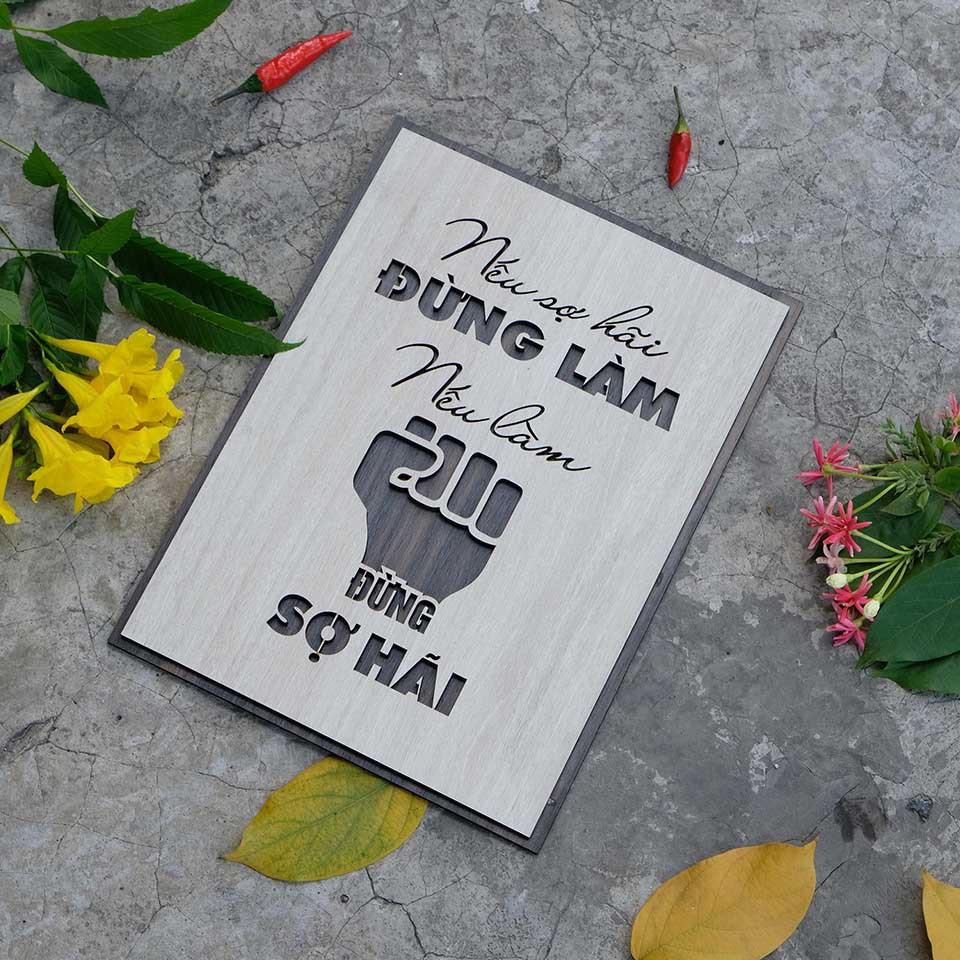 Nếu sợ hãi
ĐỪNG LÀM
Nếu làm
ĐỪNG
SỢ HÃI